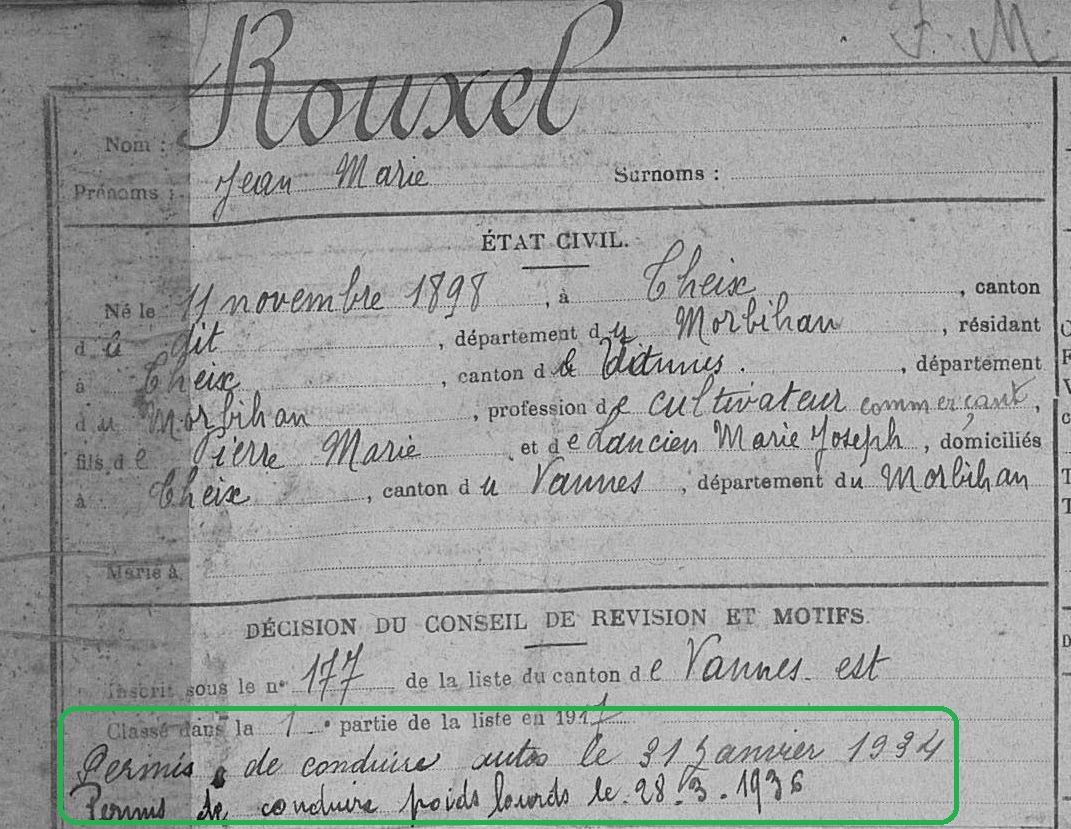 F. M.
Rouxel
Nom :
Prénoms : Jean Marie Surnoms :
ÉTAT CIVIL.
Né le 11 novembre 1898, à Theix, canton
d û dit, département du Morbihan, résidant
à Theix, canton de Vannes., département
du Morbihan, profession de cultivateur commerçant,
fils de Pierre Marie et de Lancien Marie Joseph, domiciliés
à Theix, canton du Vannes, département du Morbihan
Marié à
DÉCISION DU CONSEIL DE REVISION ET MOTIFS.
Inscrit sous le n° 177 de la liste du canton de Vannes. est
Classé dans la 1e partie de la liste en 1917
Permis de conduire autos le 31 Janvier 1934
Permis de conduire poids lourds le. 28. 3. 1936